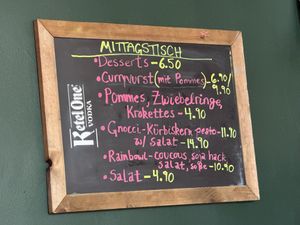 MITTAGSTISCH
• Desserts - 6.50
• Currywurst (mit Pommes) - 6.90/
9.90
• Pommes, Zwiebelringe,
Krokettes - 4.90
• Gnocci-Kürbiskern pesto - 11.90
w/ Salat - 14.90
• Rainbowl - coucous, soja hack,
salat, soße - 10.90
• Salat - 4.90
Ketel One
VODKA